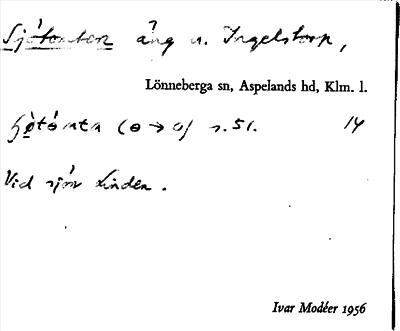 Sjötomten äng u. Ingelstorp,
Lönneberga sn, Aspelands hd, Klm. l.
s. 51. 14
Vid sjön Linden.
Ivar Modéer 1956